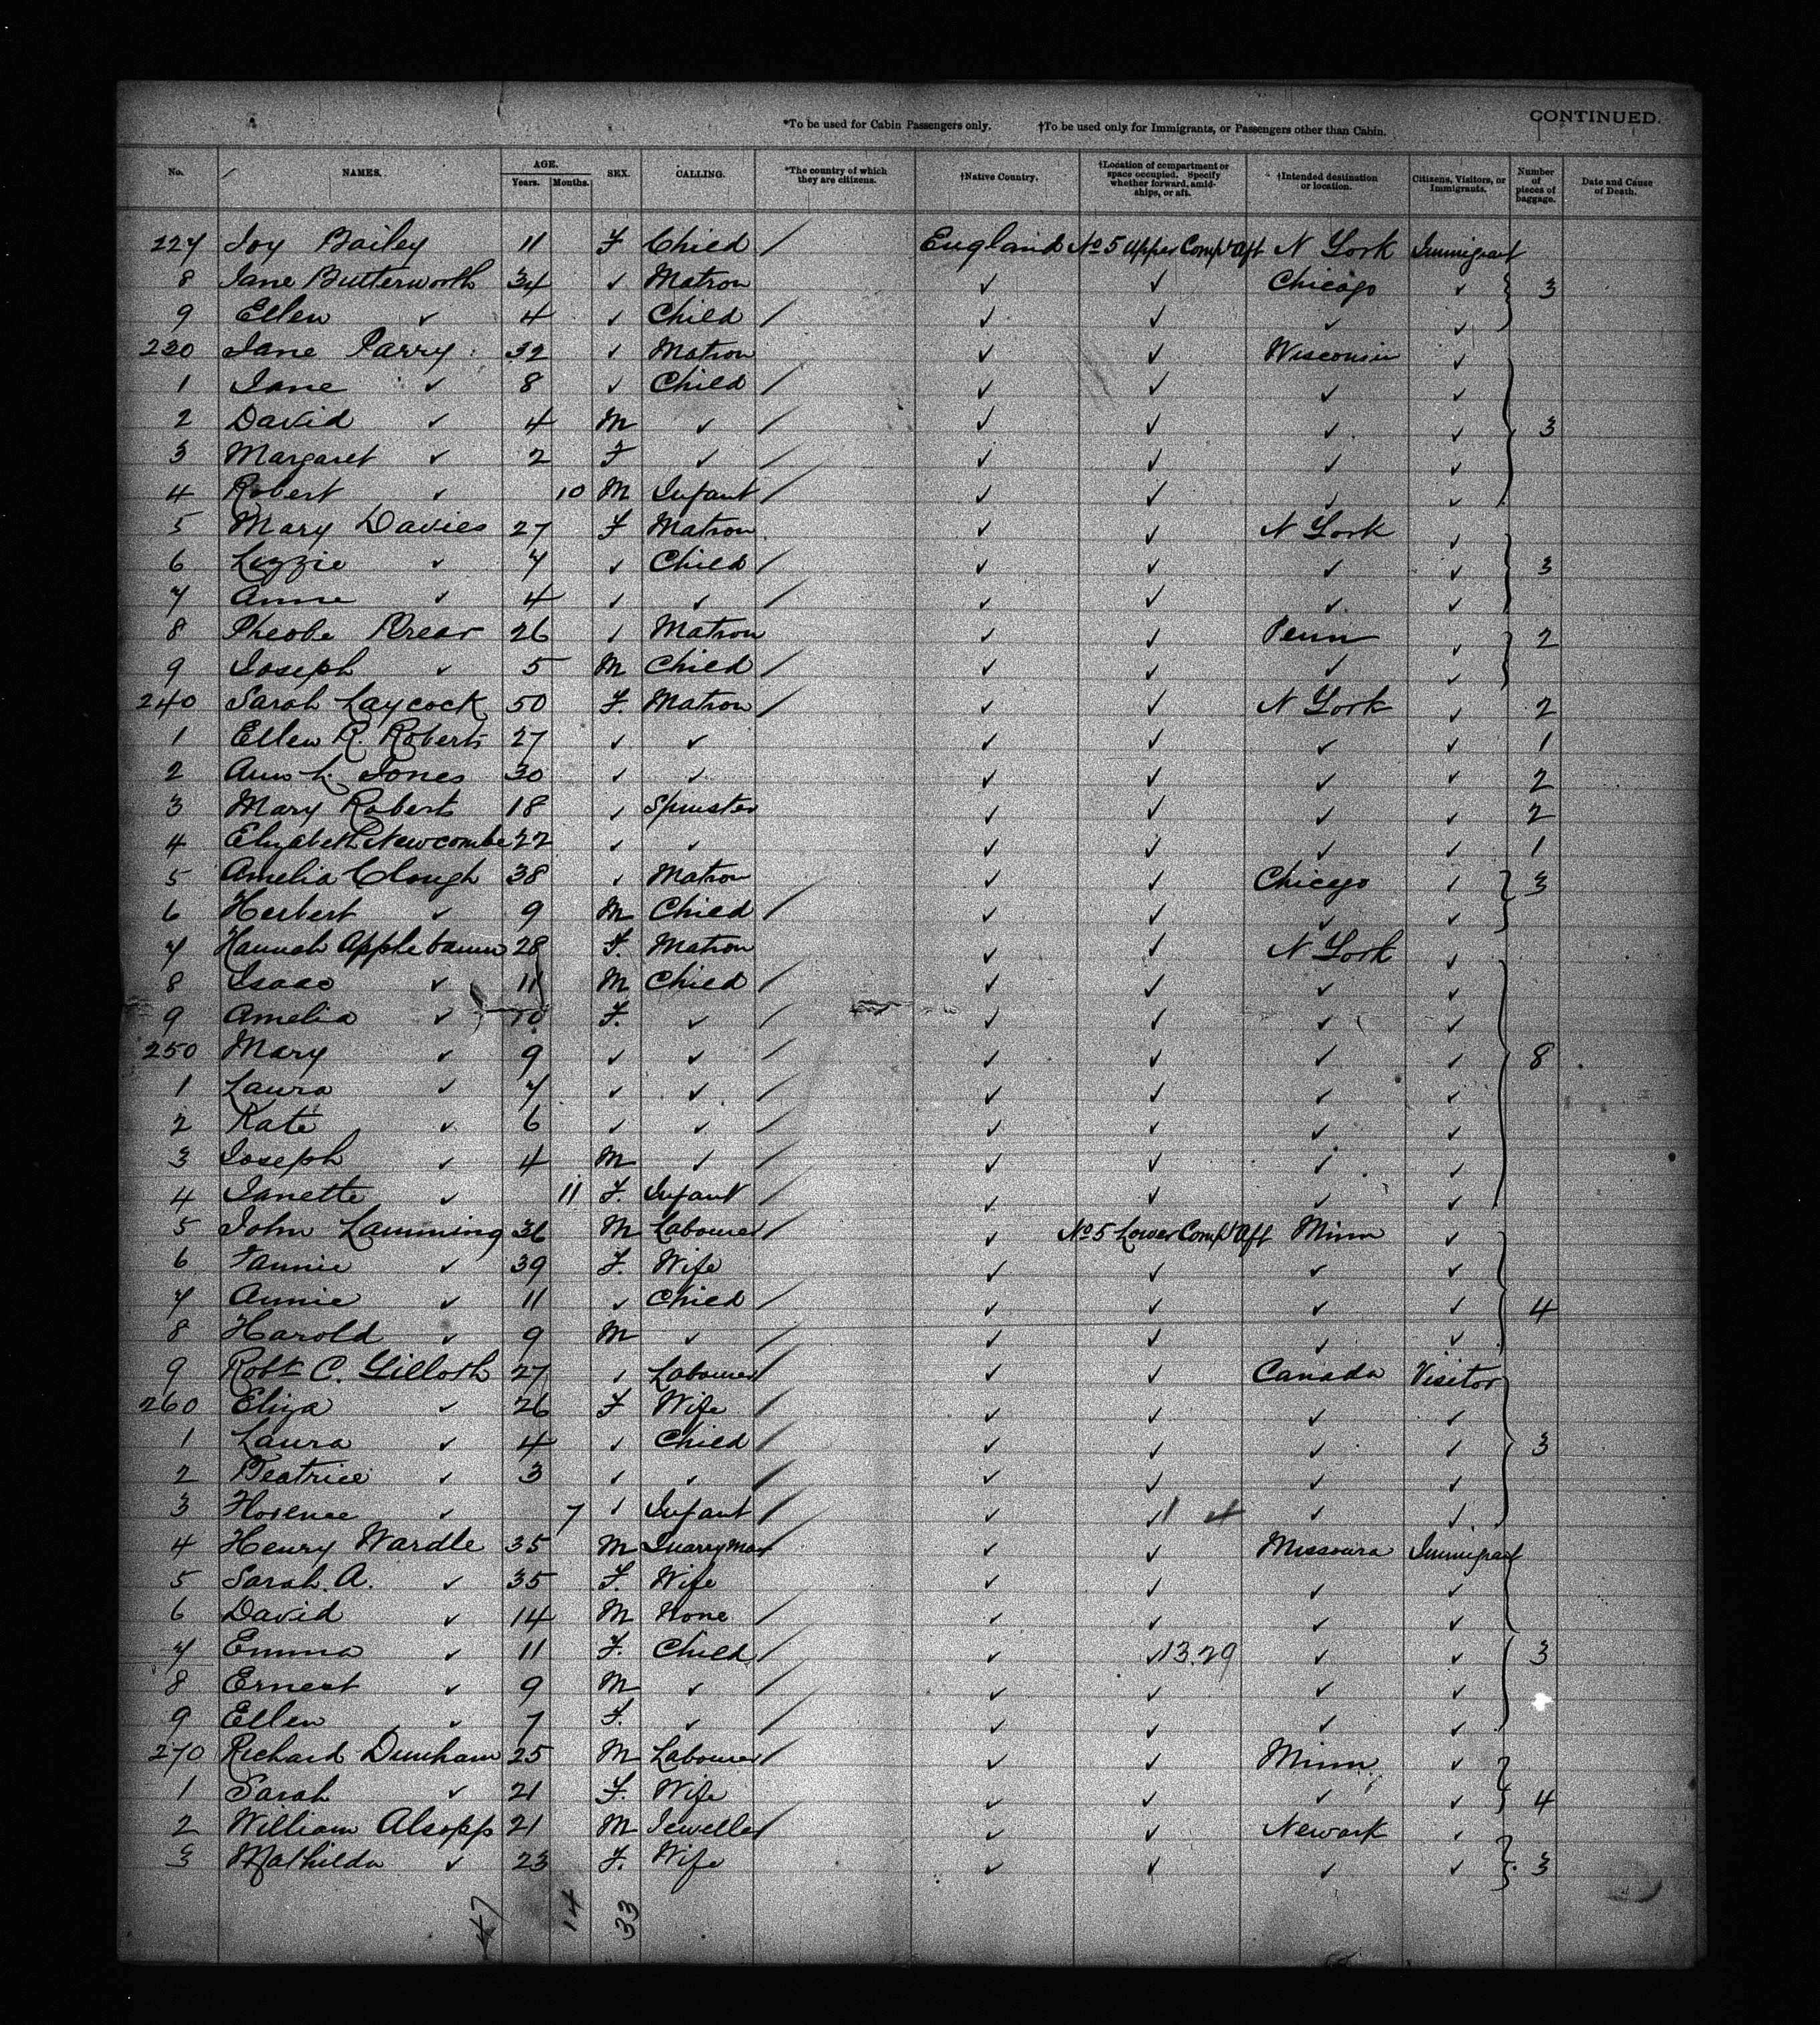 CONTINUED.
*To be used for Cabin Passengers only. †To be used only for Immigrants, or Passengers other than Cabin.
No. NAMES. AGE. Years. Months. SEX. CALLING. *The country of which they are citizens. †Native Country. †Location of compartment or space occupied. Specify whether forward, amidships, or aft. †Intended destination or location. Citizens, Visitors, or Immigrants. Number of pieces of baggage. Date and Cause of Death.
227 Joy Bailey 11 F Child / England No 5 Upper Compt Aft N York Immigrant
8 Jane Butterworth 34 ✓ Matron ✓ ✓ Chicago ✓ 3
9 Ellen ✓ 4 ✓ Child / ✓ ✓ ✓ ✓
230 Jane Parry 32 ✓ Matron ✓ ✓ Wisconsin ✓
1 Jane ✓ 8 ✓ Child / ✓ ✓ ✓ ✓
2 David ✓ 4 M ✓ / ✓ ✓ ✓ ✓ 3
3 Margaret ✓ 2 F ✓ / ✓ ✓ ✓ ✓
4 Robert ✓ 10 M Infant / ✓ ✓ ✓ ✓
5 Mary Davies 27 F Matron ✓ ✓ N York ✓
6 Lizzie ✓ 7 ✓ Child / ✓ ✓ ✓ ✓ 3
7 Anne ✓ 4 ✓ ✓ / ✓ ✓ ✓ ✓
8 Pheobe 26 ✓ Matron ✓ ✓ Penn ✓ 2
9 Joseph ✓ 5 M Child / ✓ ✓ ✓ ✓
240 Sarah Laycock 50 F. Matron / ✓ ✓ N York ✓ 2
1 Ellen R. Roberts 27 ✓ ✓ ✓ ✓ ✓ ✓ 1
2 Ann L. Jones 30 ✓ ✓ ✓ ✓ ✓ ✓ 2
3 Mary Roberts 18 ✓ Spinster ✓ ✓ ✓ ✓ 2
4 Elizabeth Newcombe 22 ✓ ✓ ✓ ✓ ✓ ✓ 1
5 Amelia Clough 38 ✓ Matron ✓ ✓ Chicago ✓ 3
6 Herbert ✓ 9 M Child / ✓ ✓ ✓ ✓
7 Hannah Applebaum 28 F. Matron ✓ ✓ N York ✓
8 Isaac ✓ 11 M Child / ✓ ✓ ✓ ✓
9 Amelia ✓ 10 F. ✓ / ✓ ✓ ✓ ✓
250 Mary ✓ 9 ✓ ✓ / ✓ ✓ ✓ ✓ 8
1 Laura ✓ 7 ✓ ✓ / ✓ ✓ ✓ ✓
2 Kate ✓ 6 ✓ ✓ / ✓ ✓ ✓ ✓
3 Joseph ✓ 4 M ✓ / ✓ ✓ ✓ ✓
4 Janette ✓ 11 F. Infant / ✓ ✓ ✓ ✓
5 John Lamming 36 M Labourer / ✓ No 5 Lower Compt Aft Minn ✓
6 Fannie ✓ 39 F. Wife ✓ ✓ ✓ ✓
7 Annie ✓ 11 ✓ Child / ✓ ✓ ✓ ✓ 4
8 Harold ✓ 9 M ✓ / ✓ ✓ ✓ ✓
9 Robt C. 27 ✓ Labourer / ✓ ✓ Canada Visitor
260 Eliza ✓ 26 F Wife / ✓ ✓ ✓ ✓
1 Laura ✓ 4 ✓ Child / ✓ ✓ ✓ ✓ 3
2 Beatrice ✓ 3 ✓ ✓ / ✓ ✓ ✓ ✓
3 Florence ✓ 7 ✓ Infant / ✓ ✓ ✓ ✓
4 Henry Wardle 35 M Quarryman / ✓ ✓ Missoura Immigrant
5 Sarah. A. ✓ 35 F. Wife ✓ ✓ ✓ ✓
6 David ✓ 14 M None / ✓ ✓ ✓ ✓
7 Emma ✓ 11 F. Child / ✓ ✓ 13.29 ✓ ✓ 3
8 Ernest ✓ 9 M ✓ / ✓ ✓ ✓ ✓
9 Ellen ✓ 7 F. ✓ / ✓ ✓ ✓ ✓
270 Richard Dunham 25 M Labourer / ✓ ✓ Minn ✓
1 Sarah ✓ 21 F. Wife ✓ ✓ ✓ ✓ 4
2 William Alsopp 21 M Jeweller / ✓ ✓ Newark ✓
3 Mathilda ✓ 23 F. Wife ✓ ✓ ✓ ✓ 3
47 14 33